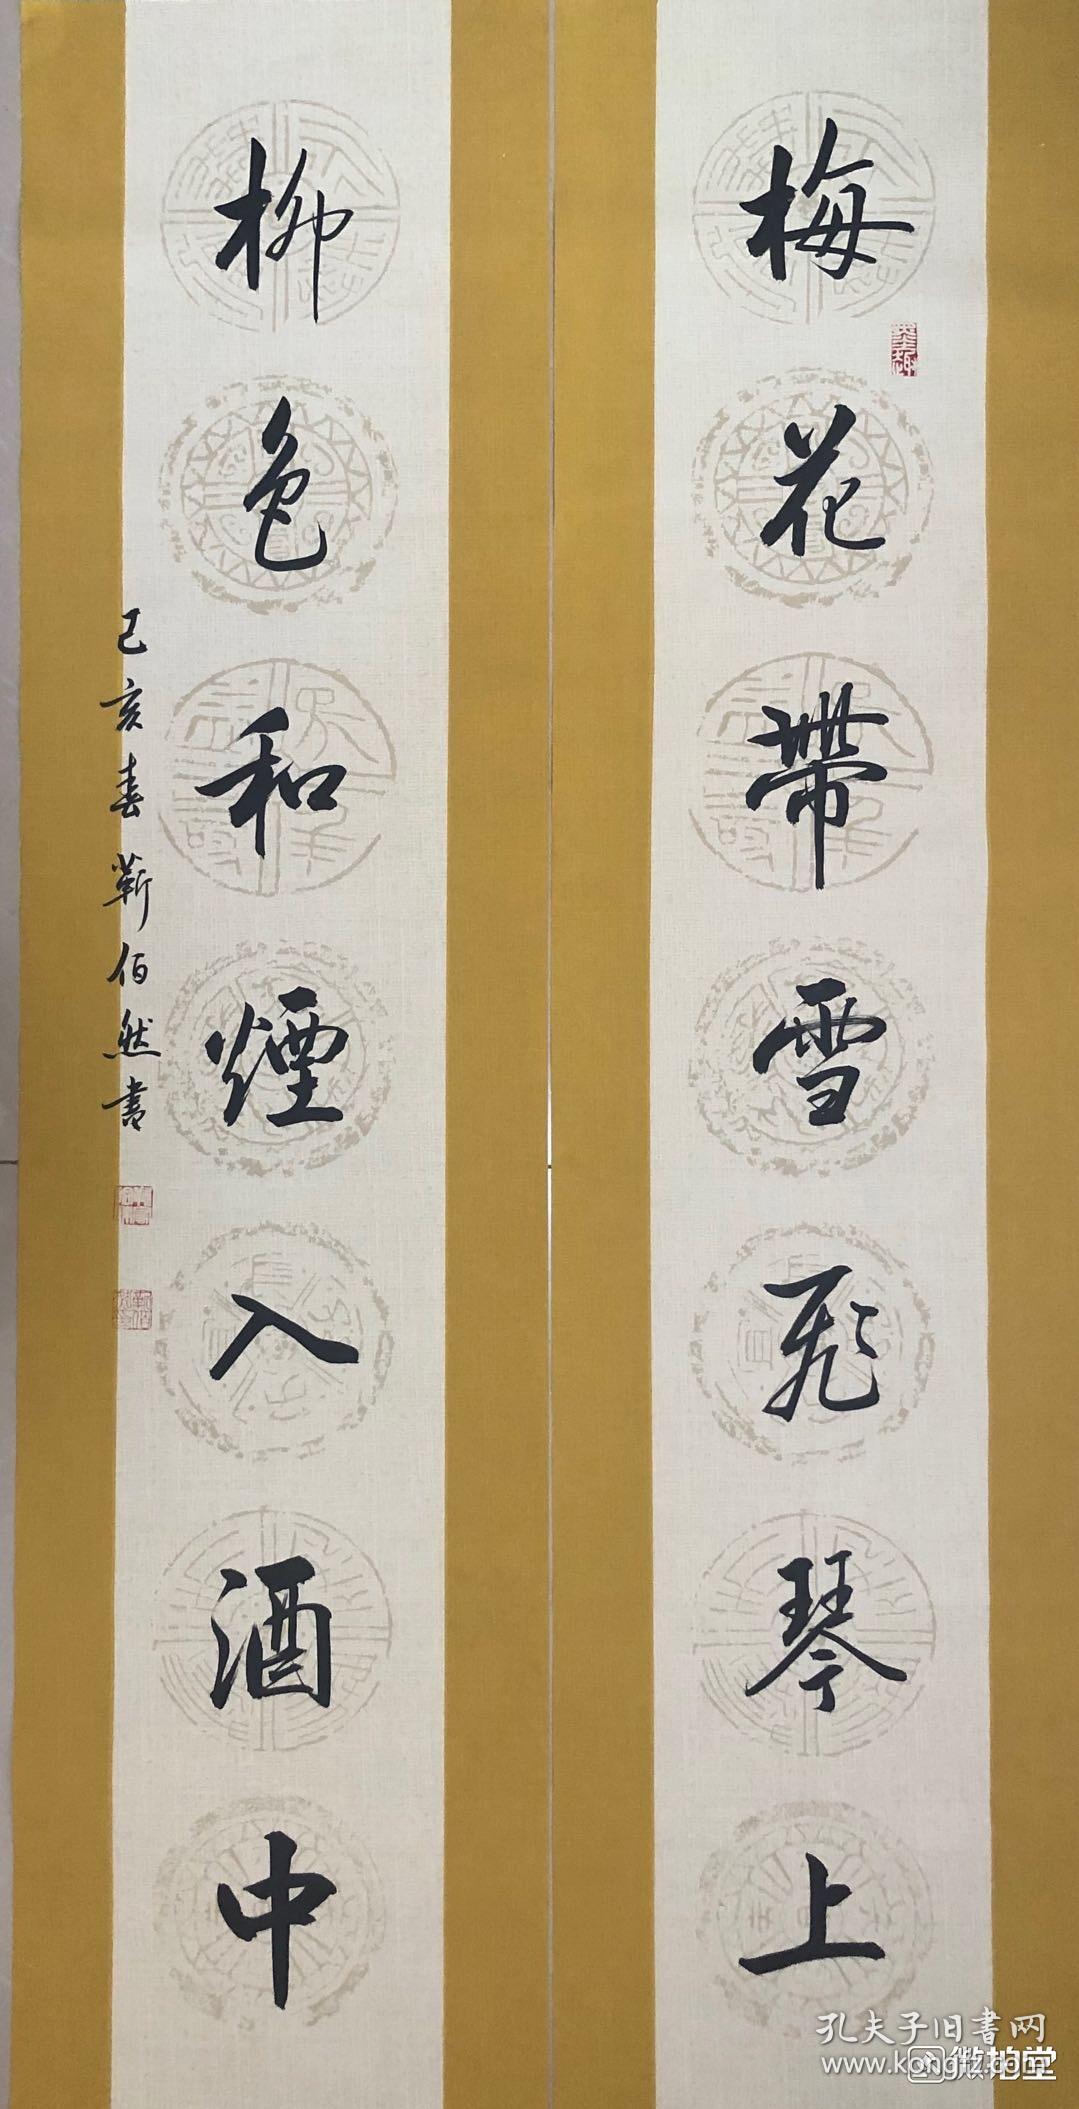 梅花帶雪飛琴上
柳色和煙入酒中
己亥春蘄伯然書
孔夫子旧書网
www.kongfz.com
微拍堂